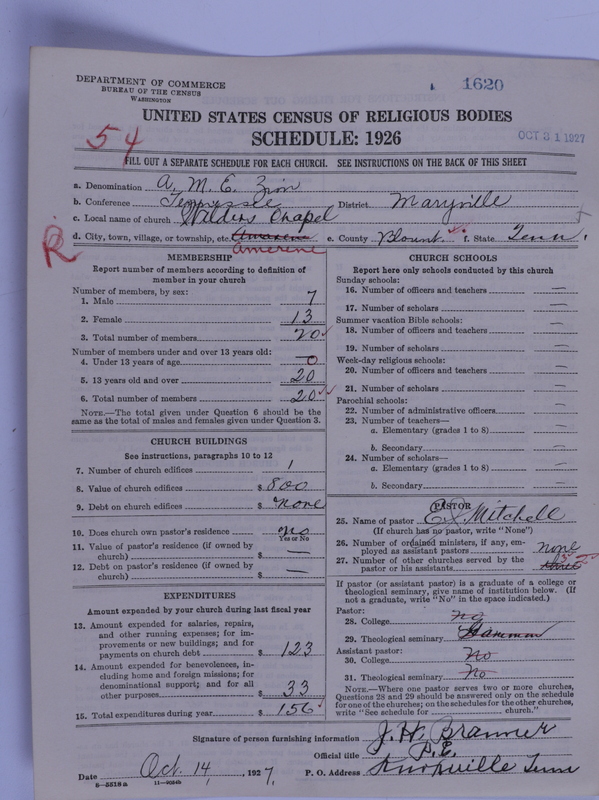 DEPARTMENT OF COMMERCE
BUREAU OF THE CENSUS
WASHINGTON
1620
UNITED STATES CENSUS OF RELIGIOUS BODIES
SCHEDULE: 1926
OCT 31 1927
54
FILL OUT A SEPARATE SCHEDULE FOR EACH CHURCH. SEE INSTRUCTIONS ON THE BACK OF THIS SHEET
a. Denomination A. M. E. Zion
b. Conference Tennessee District Maryville
c. Local name of church Wilders Chapel
d. City, town, village, or township, etc. e. County Blount f. State Tenn
R
Amerine
MEMBERSHIP
Report number of members according to definition of member in your church
Number of members, by sex:
1. Male 7
2. Female 13
3. Total number of members 20
Number of members under and over 13 years old:
4. Under 13 years of age 0
5. 13 years old and over 20
6. Total number of members 20
NOTE.—The total given under Question 6 should be the
same as the total of males and females given under Question 3.
CHURCH BUILDINGS
See instructions, paragraphs 10 to 12
7. Number of church edifices 1
8. Value of church edifices $ 800
9. Debt on church edifices $ none
10. Does church own pastor's residence no
Yes or No
11. Value of pastor's residence (if owned by
church) $ —
12. Debt on pastor's residence (if owned by
church) $ —
EXPENDITURES
Amount expended by your church during last fiscal year
13. Amount expended for salaries, repairs,
and other running expenses; for im-
provements or new buildings; and for
payments on church debt $ 123
14. Amount expended for benevolences, in-
cluding home and foreign missions; for
denominational support; and for all
other purposes $ 33
15. Total expenditures during year $ 156
CHURCH SCHOOLS
Report here only schools conducted by this church
Sunday schools:
16. Number of officers and teachers —
17. Number of scholars —
Summer vacation Bible schools:
18. Number of officers and teachers —
19. Number of scholars —
Week-day religious schools:
20. Number of officers and teachers —
21. Number of scholars —
Parochial schools:
22. Number of administrative officers —
23. Number of teachers—
a. Elementary (grades 1 to 8) —
b. Secondary —
24. Number of scholars—
a. Elementary (grades 1 to 8) —
b. Secondary —
PASTOR
25. Name of pastor Mitchell
(If church has no pastor, write "None")
26. Number of ordained ministers, if any, em-
ployed as assistant pastors none
27. Number of other churches served by the
pastor or his assistants
If pastor (or assistant pastor) is a graduate of a college or
theological seminary, give name of institution below. (If
not a graduate, write "No" in the space indicated.)
Pastor:
28. College no
29. Theological seminary
Assistant pastor:
30. College No
31. Theological seminary No
NOTE.—Where one pastor serves two or more churches,
Questions 28 and 29 should be answered only on the schedule
for one of the churches; on the schedules for the other churches,
write "See schedule for church."
Signature of person furnishing information J. H. Branner
Official title P. E.
Date Oct. 14, 1927. P. O. Address Knoxville Tenn